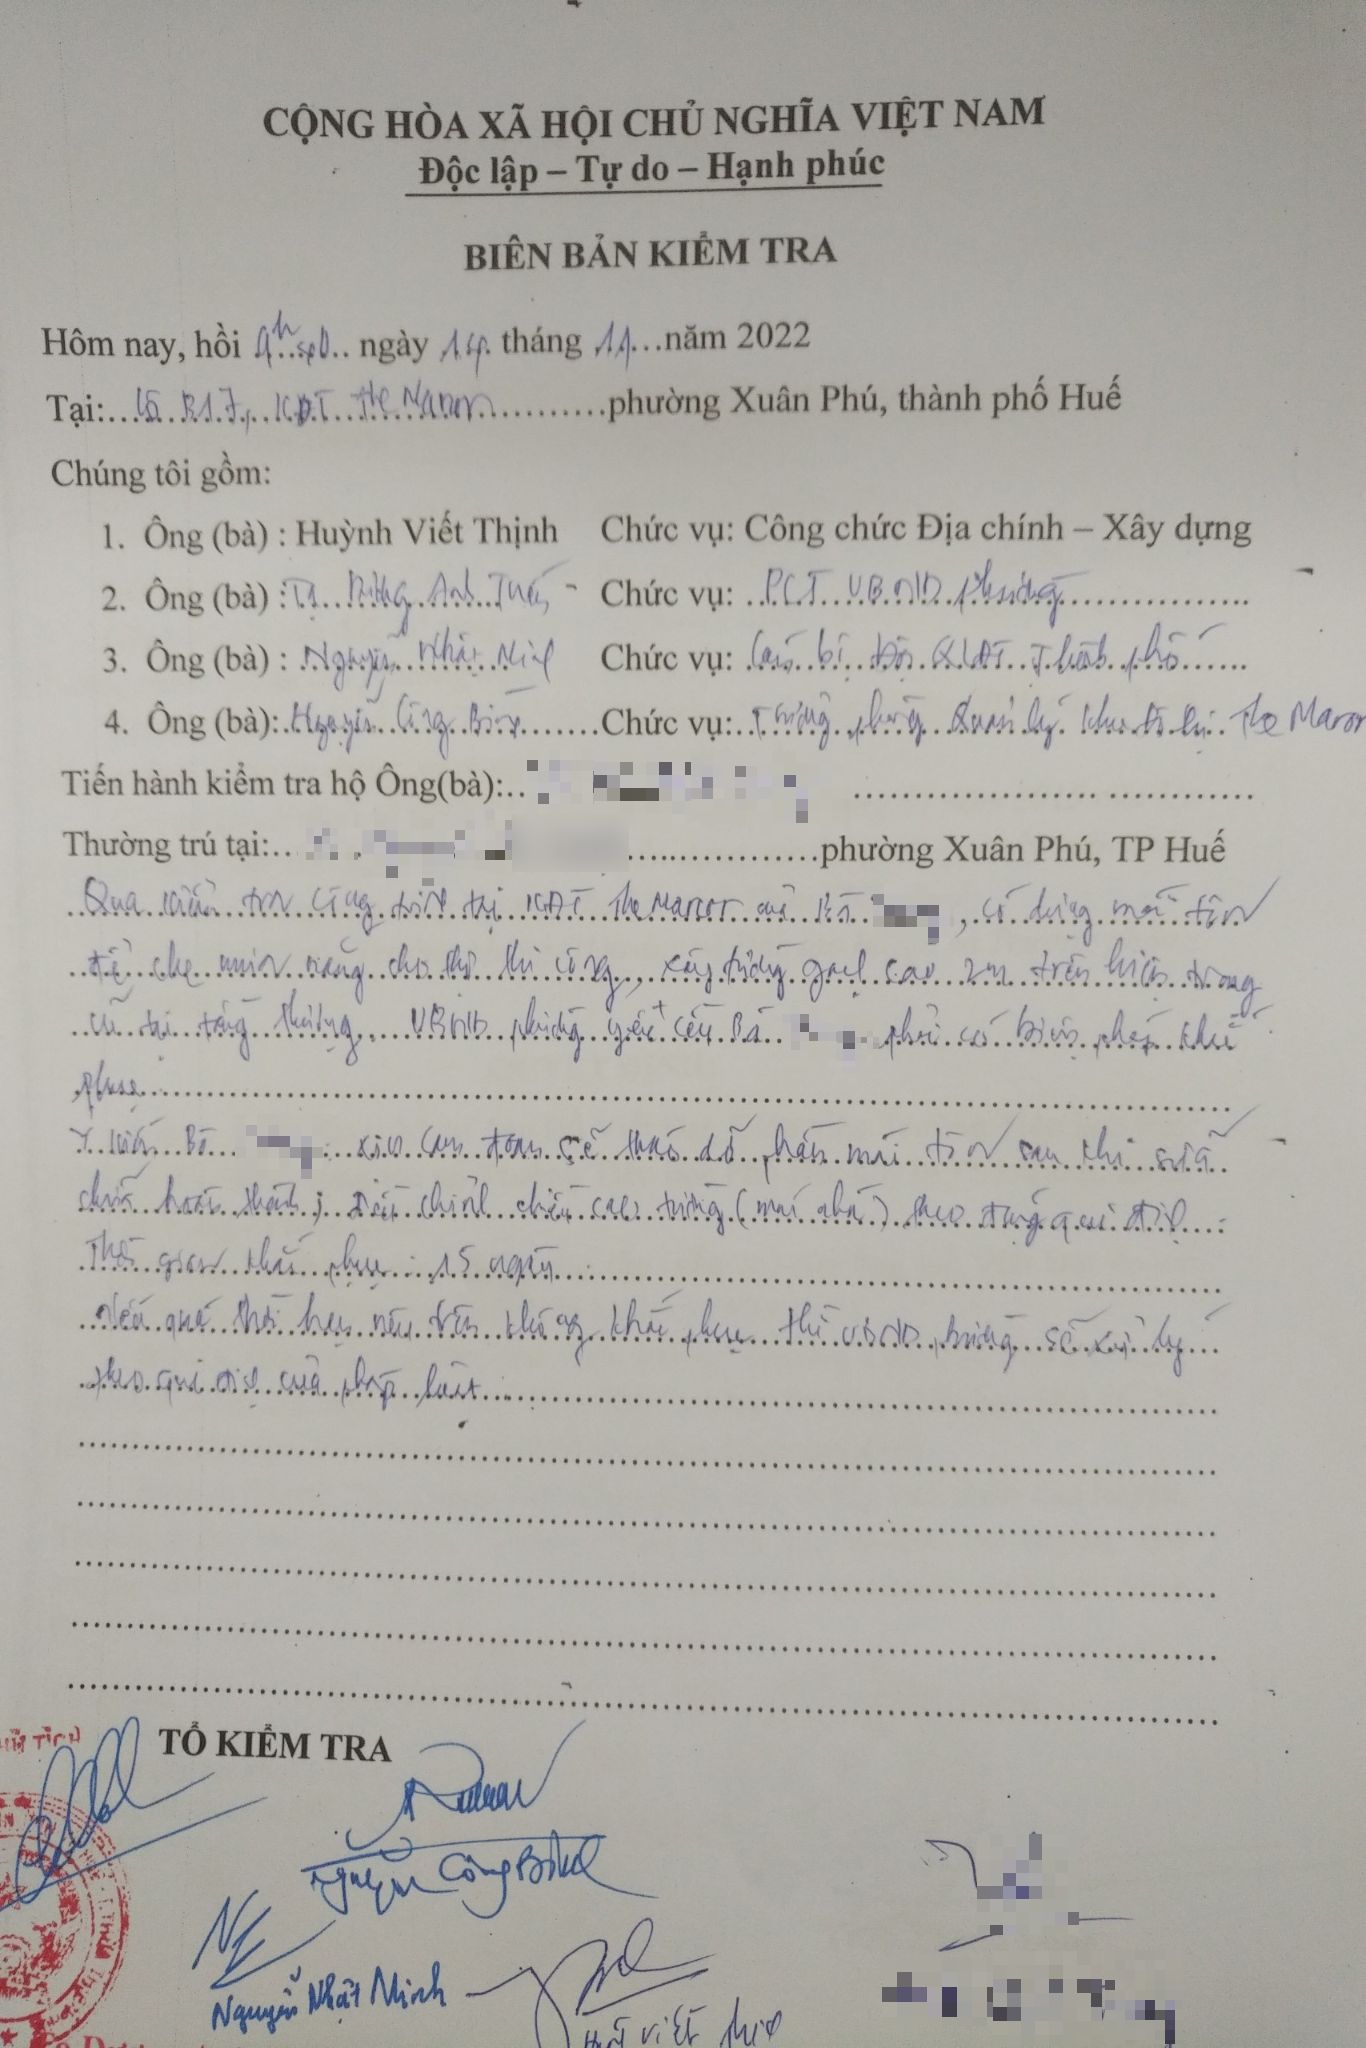 CỘNG HÒA XÃ HỘI CHỦ NGHĨA VIỆT NAM
Độc lập – Tự do – Hạnh phúc
BIÊN BẢN KIỂM TRA
Hôm nay, hồi 9h ngày 14 tháng 11 năm 2022
Tại: Lô B17, KĐT The Manor phường Xuân Phú, thành phố Huế
Chúng tôi gồm:
1. Ông (bà) : Huỳnh Viết Thịnh Chức vụ: Công chức Địa chính – Xây dựng
2. Ông (bà) : Anh Tuấn Chức vụ: PCT UBND phường
3. Ông (bà) : Nguyễn Nhật Minh Chức vụ: Cán bộ đội QLĐT Thành phố
4. Ông (bà): Nguyễn Công Bình Chức vụ: Trưởng phòng Quản lý khu đô thị The Manor
Tiến hành kiểm tra hộ Ông(bà):
Thường trú tại: phường Xuân Phú, TP Huế
Qua kiểm tra công trình tại KĐT The Manor của Bà , có dựng mái tôn
để che mưa nắng cho thợ thi công, xây tường gạch cao 2m trên hiện trạng
cũ tại tầng thượng. UBND phường yêu cầu Bà phải có biện pháp khắc
phục
Ý kiến Bà : xin cam đoan sẽ tháo dỡ phần mái tôn sau khi sửa
chữa hoàn thành; điều chỉnh chiều cao tường (mái nhà) theo đúng qui định
Thời gian khắc phục : 15 ngày
Nếu quá thời hạn nêu trên không khắc phục thì UBND phường sẽ xử lý
theo qui định của pháp luật
TỔ KIỂM TRA
Nguyễn Công Bình
Nguyễn Nhật Minh
Viết